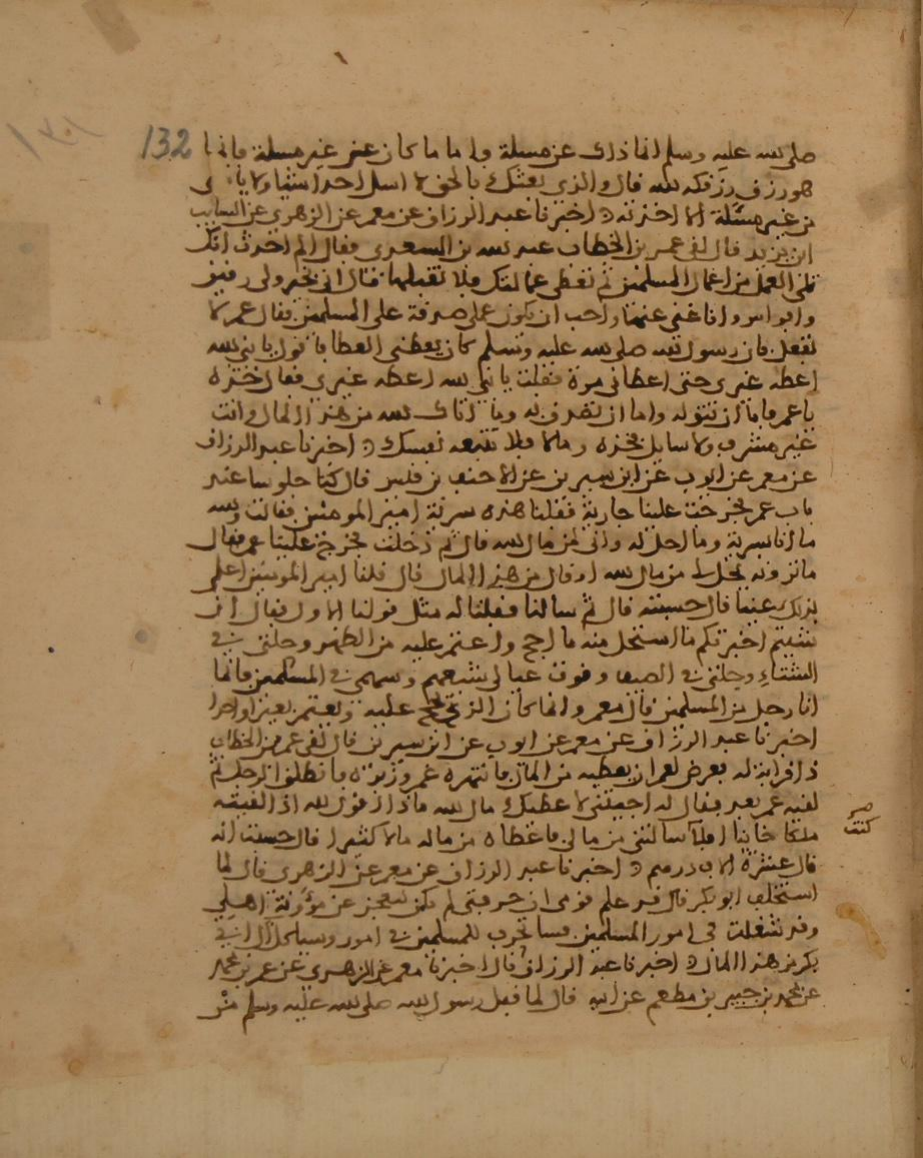 132
صلى الله عليه وسلم انما ذلك عن مسلة واما ما كان عن غير مسلة فانما
هو رزق رزقكه الله قال والذي بعثك بالحق لا اسل احدا شيا ولا ياتيني
من غير مسئلة الا اخذته اخبرنا عبد الرزاق عن معمر عن الزهري عن السايب
ابن يزيد قال لقي عمر بن الخطاب عبد الله بن السعدي فقال الم احدث انك
تلي العمل من اعمال المسلمين ثم تعطى عمالتك فلا تقبلها فقال اني بخير ولي رقيق
وافراس وانا غني عنها واحب ان يكون عملي صدقة على المسلمين فقال عمر لا
تفعل فان رسول الله صلى الله عليه وسلم كان يعطني العطا فاقول يا نبي الله
اعطه غيري حتى اعطاني مرة فقلت يا نبي الله اعطه غيري فقال خذه
يا عمر فاما ان تتموله واما ان تصدق به وما اتاك الله من هذا المال وانت
غير مشرف ولا سايل فخذه وما لا فلا تتبعه نفسك اخبرنا عبد الرزاق
عن معمر عن ايوب عن ابن سيرين عن الاحنف بن قيس قال كنا جلوسا عند
باب عمر فخرجت علينا جارية فقلنا هذه سرية امير المومنين فقالت والله
ما انا بسرية وما احل له واني لمن مال الله قال ثم دخلت فخرج علينا عمر فقال
ما ترونه يحل لي من مال الله او قال من هذا المال قال قلنا امير المومنين اعلم
بذلك منا قال حسبته قال ثم سالنا فقلنا له مثل قولنا الاول فقال ان
شيتم اخبرتكم ما استحل منه ما احج واعتمر عليه من الظهر وحلتي في
الشتاء وحلتي في الصيف وقوت عيالي شبعهم وسهمي في المسلمين فانما
انا رجل من المسلمين قال معمر وانما كان الذي يحج عليه ويعتمر بعيرا واحدا
اخبرنا عبد الرزاق عن معمر عن ايوب عن ابن سيرين قال لقي عمر بن الخطاب
ذا قرابة له فعرض لعمر ان يعطيه من المال فانتهره عمر وزبره فانطلق الرجل ثم
لقيه عمر بعد فقال له اجيتني لاعطيك مال الله ماذا اقول لله اذا لقيته
ملكا خاينا افلا سالتني من مالي فاعطاه من ماله مالا كثيرا قال حسبت انه
قال عشرة الاف درهم اخبرنا عبد الرزاق عن معمر عن الزهري قال لما
استخلف ابو بكر قال قد علم قومي ان حرفتي لم تكن تعجز عن مؤنة اهلي
وقد شغلت في امور المسلمين فساحترف للمسلمين في امورهم وسياكل ال ابي
بكر من هذا المال اخبرنا عبد الرزاق قال اخبرنا معمر عن الزهري عن عمر بن محمد
عن محمد بن جبير بن مطعم عن ابيه قال لما قفل رسول الله صلى الله عليه وسلم من